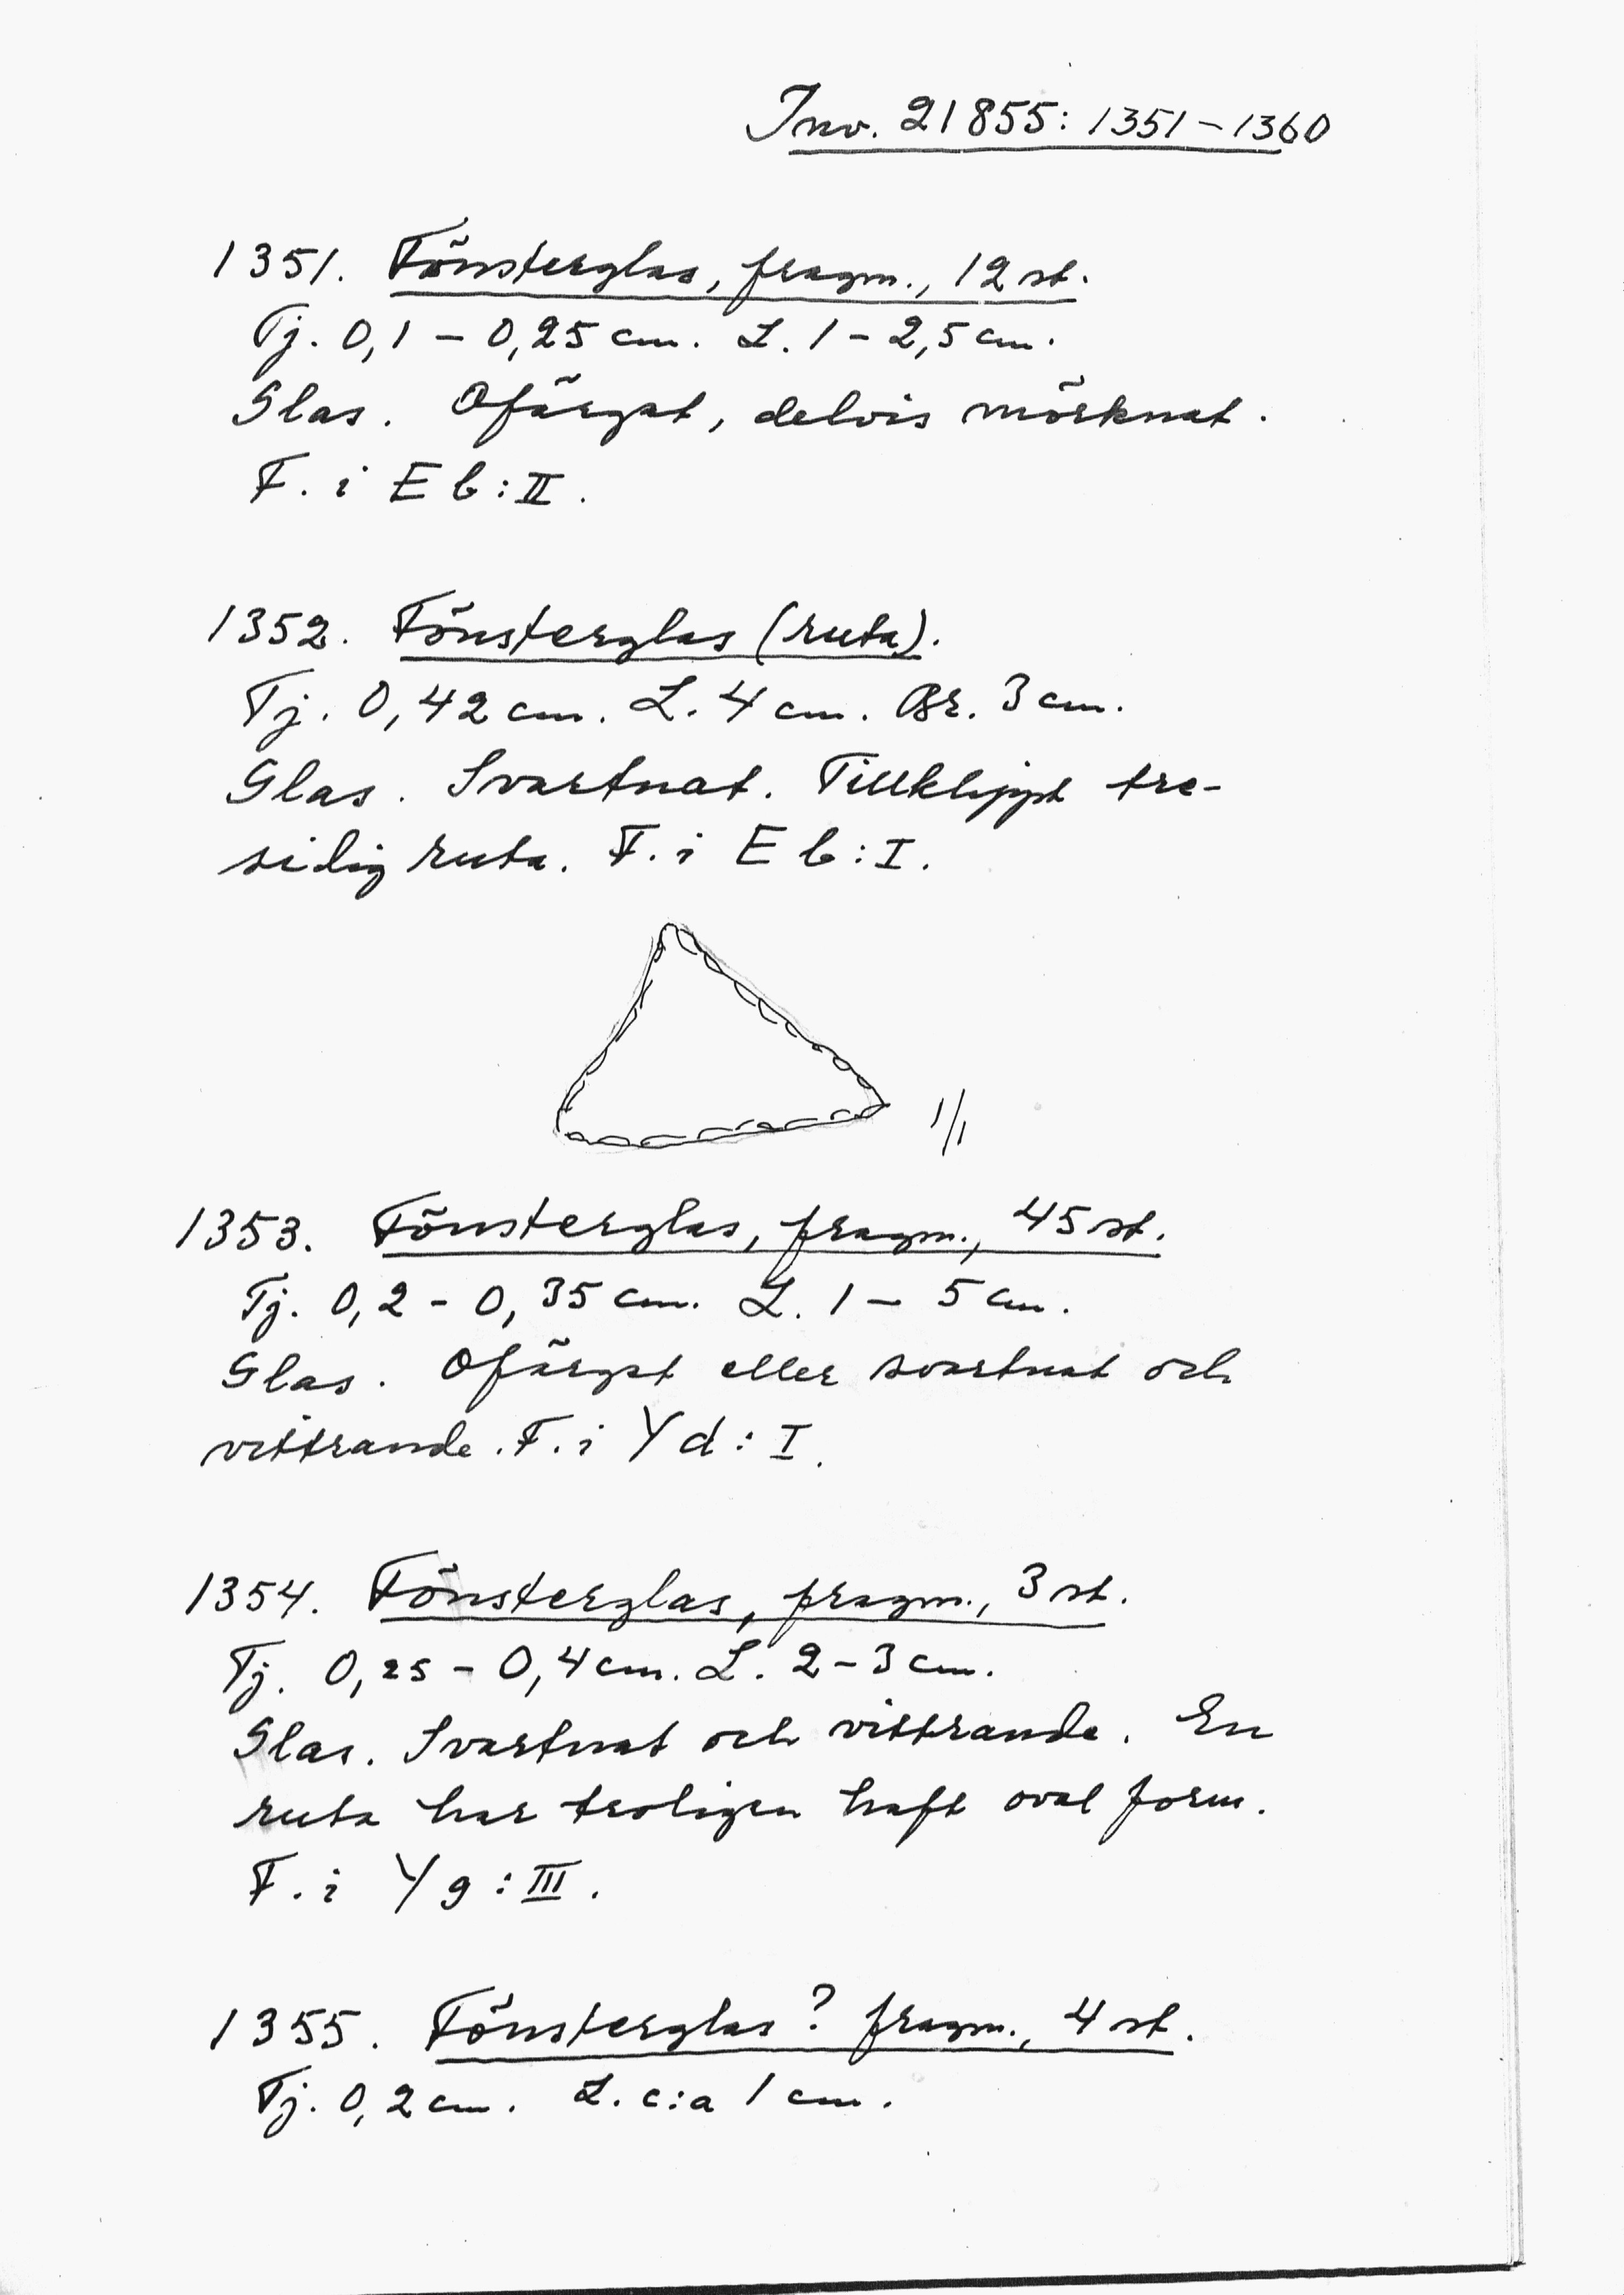 Inv. 21855: 1351-1360
1351. Fönsterglas, fragm., 12 st.
Tj. 0,1 - 0,25 cm. L. 1 - 2,5 cm.
Glas. Ofärgat, delvis mörknat.
F. i E b : II.
1352. Fönsterglas (ruta).
Tj. 0,42 cm. L. 4 cm. Br. 3 cm.
Glas. Svartnat. Tillklippt tre-
sidig ruta. F. i E b : I.
1/1
1353. Fönsterglas, fragm., 45 st.
Tj. 0,2 - 0,35 cm. L. 1 - 5 cm.
Glas. Ofärgat eller svartnat och
vittrande. F. i Y d : I.
1354. Fönsterglas, fragm., 3 st.
Tj. 0,25 - 0,4 cm. L. 2 - 3 cm.
Glas. Svartnat och vittrande. En
ruta har troligen haft oval form.
F. i Y g : III.
1355. Fönsterglas? fragm., 4 st.
Tj. 0,2 cm. L. c:a 1 cm.